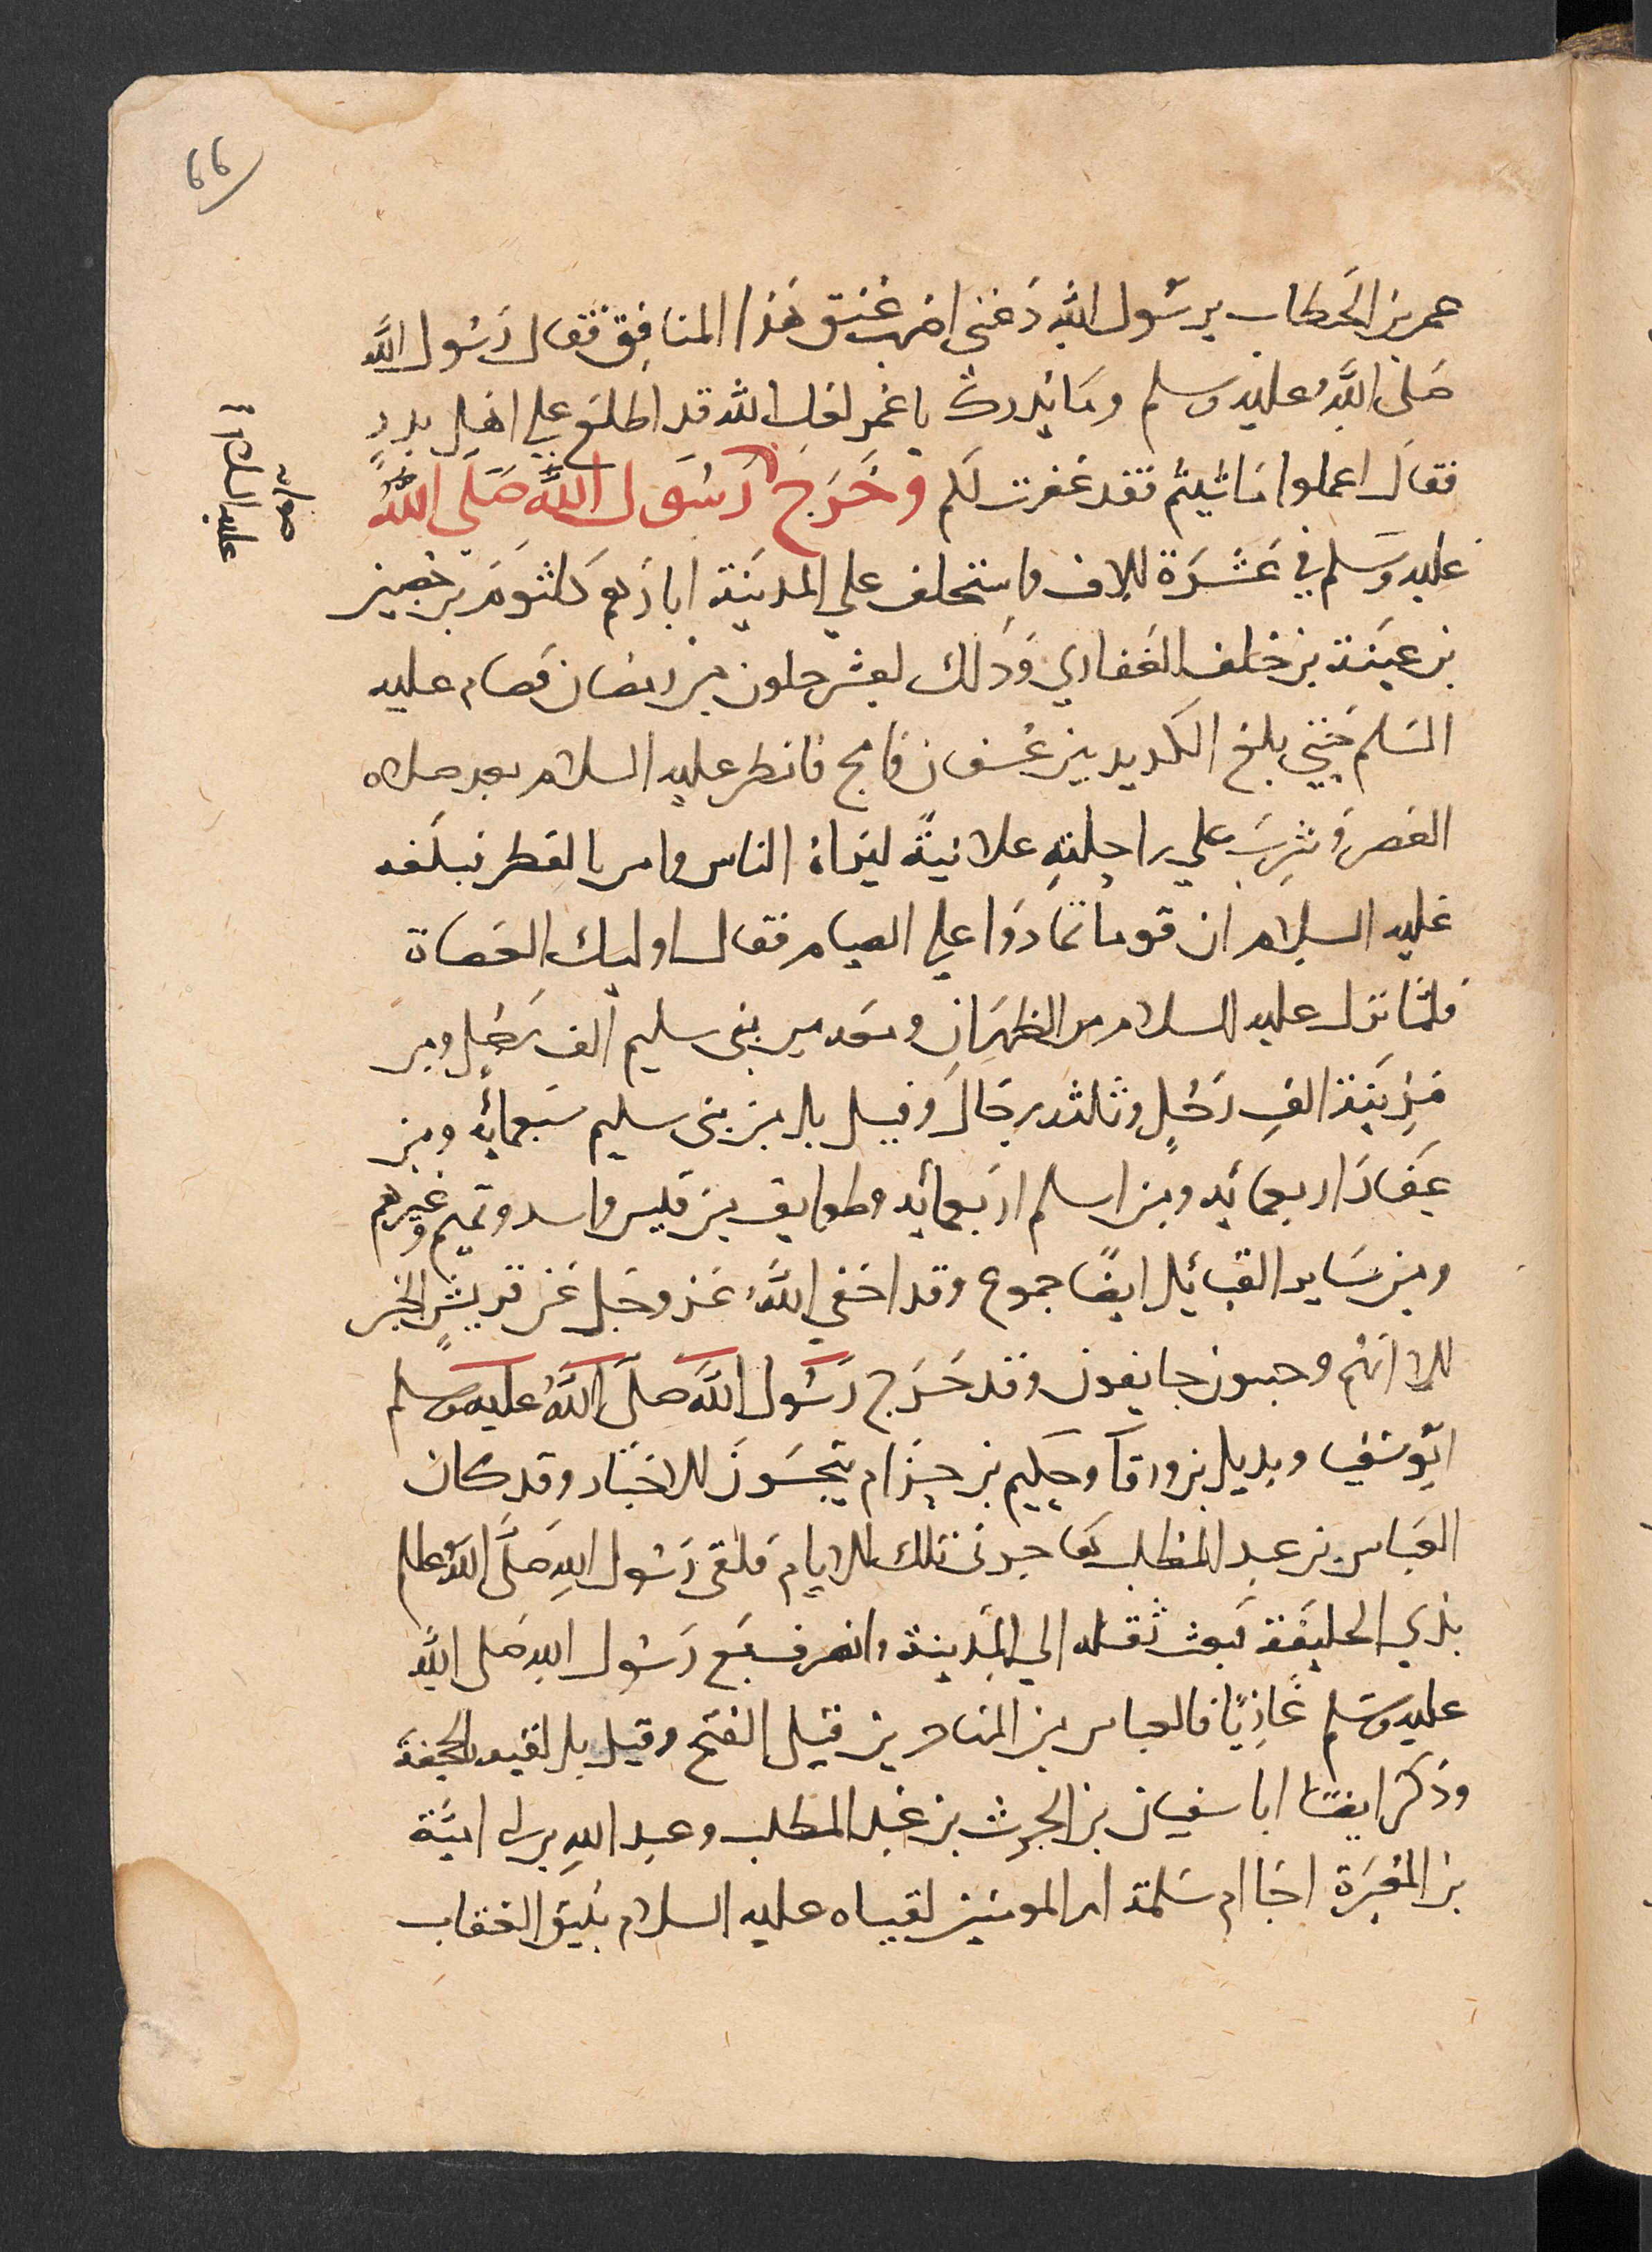 66
عمر بن الخطاب يرسول الله دعني اضرب عنق هذا المنافق فقال رسول الله
صلى الله عليه وسلم وما يدريك يا عمر لعل الله قد اطلع علي اهل بدر
فقال اعملوا ما شيتم فقد غفرت لكم وخرج رسول الله صلى الله
عليه وسلم في عشرة الاف واستخلف علي المدينة ابا رهم كلثوم بن حصين
بن عبينة بن خلف الغفاري وذلك لعشر خلون من رمضان فصام عليه
السلم حتي بلغ الكديد بين عسفان وامج فافطر عليه السلام بعد صلاه
العصر وشرب علي راحلته علانية ليراه الناس وامر بالفطر فبلغه
عليه السلام ان قوما تمادوا علي الصيام فقال اوليك العصاة
فلما نزل عليه السلام مر الظهران ومعه من بني سليم الف رجل ومن
مزينة الف رجل وثلثه رجال وقيل بل من بني سليم سبعمائه ومن
غفار اربعمائه ومن اسلم اربعمائه وطوايف من قيس واسد وتميم وغيرهم
ومن ساير القبائل ايضا جموع وقد اخفي الله عز وجل عن قريش الخبر
الا انهم وجسون خايفون وقد خرج رسول الله صلى الله عليه وسلم
ابوسفين وبديل بن ورقا وحكيم بن حزام يتجسسون الاخبار وقد كان
العباس بن عبد المطلب هاجر في تلك الايام فلقى رسول الله صلى الله عللم
بذي الحليفة فبعث ثقله الي المدينة وانصرف مع رسول الله صلى الله
عليه وسلم غازيا فالعباس من المهاجرين قبل الفتح وقيل بل لقيه بالجحفة
وذكر ايضا ابا سفيان بن الحرث بن عبد المطلب وعبد الله بن ابي امية
بن المغيرة اخا ام سلمة ام المومنين لقياه عليه السلام بنيق العقاب
صوابه
عليه السلام